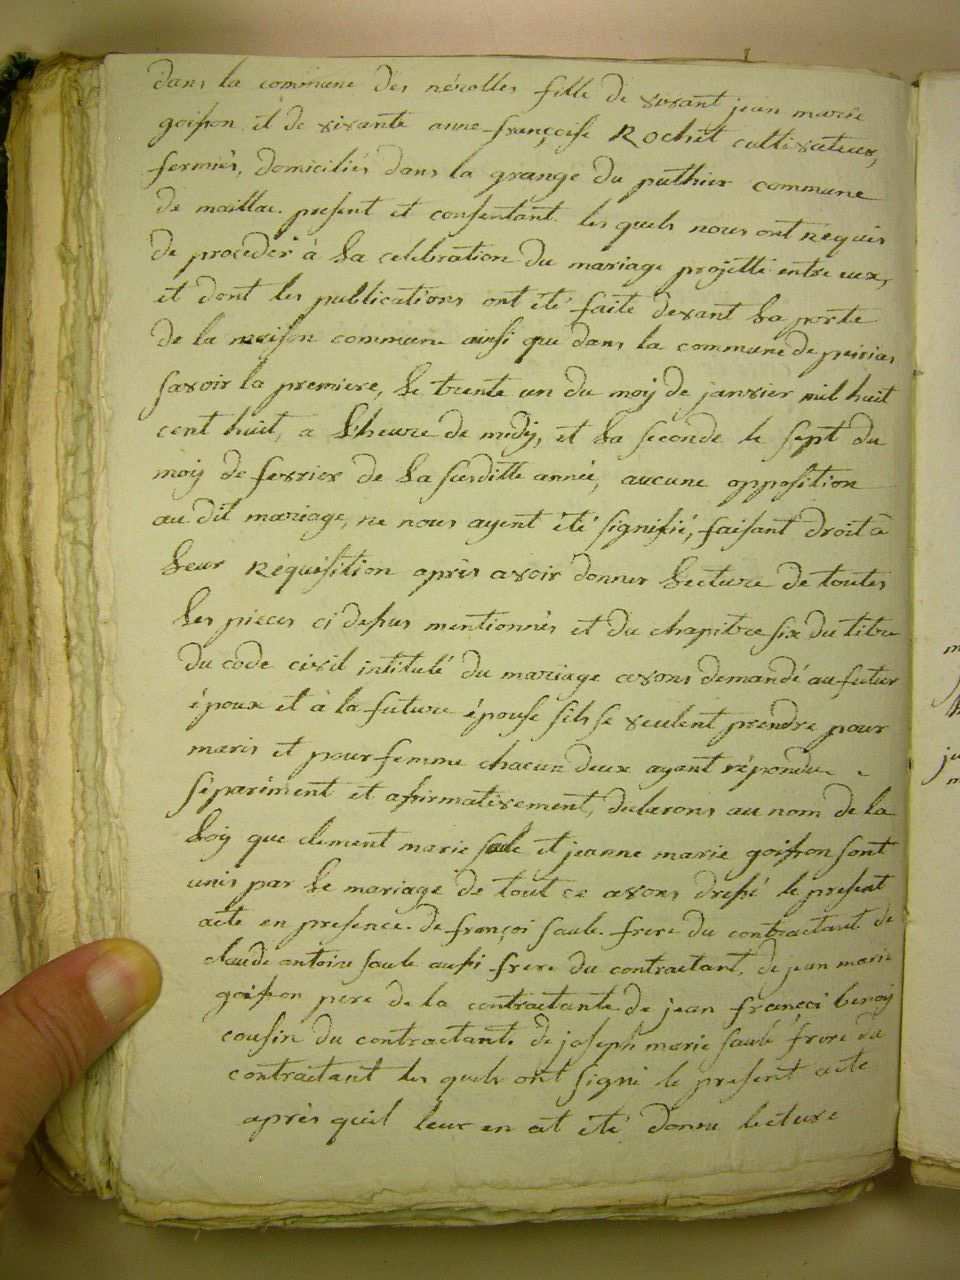 dans la commune des nérolles fille de vivant jean marie
goiffon et de vivante anne-françoise Rochet cultivateur,
fermiés, domiciliés dans la grange du puthier commune
de maillac. présent et consentant. les quels nous ont requis
de proceder à La celebration du mariage projetté entre eux,
et dont les publications ont été faite devant La porte
de la maison commune ainsi que dans la commune de peirias
savoir la premiere, Le trente un du moy de janvier mil huit
cent huit, a L'heure de midy, et La seconde le sept du
moy de fevrier de La susditte année, aucune opposition
au dit mariage, ne nous ayent été signifié, faisant droit à
Leur Réquisition après avoir donner Lecture de toutes
Les pieces ci dessus mentionnés et du chapitre six du titre
du code civil intitulé du mariage avons demandé au futur
époux et à la future épouse sils se veulent prendre pour
maris et pour femme chacun deux ayant répondu
separiment et affirmativement, duclerons au nom de la
Loy que clement marie saule et jeanne marie goiffon sont
unis par Le mariage de tout ce avons dressé le present
acte en presence. de françoi saule. frere du contractant de
claude antoine saule aussi frere du contractant, de jean marie
goiffon pere de la contractante de jean françoi benoy
cousin du contractant. de joseph marie saule frere du
contractant les quels ont signé le present acte
après quil leur en at été donné lecture